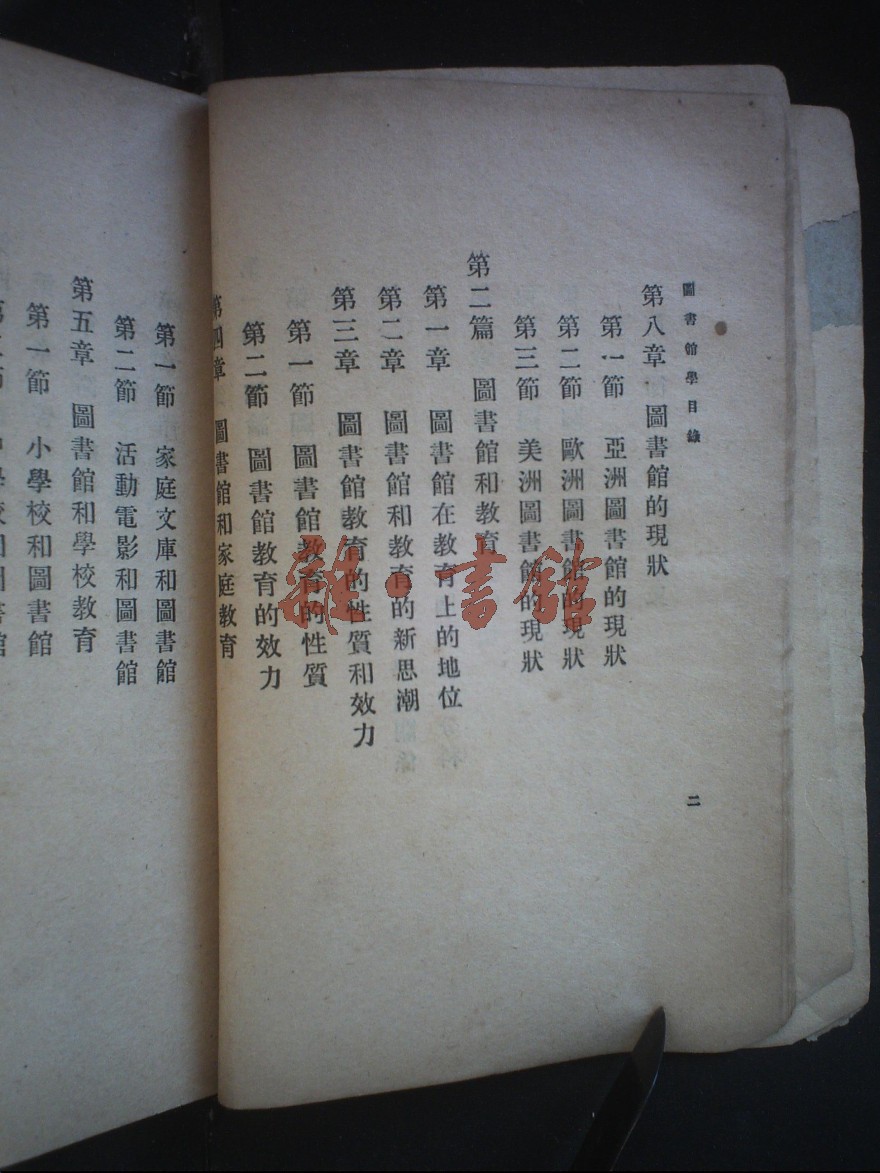 圖書館學目錄
二
第八章 圖書館的現狀
第一節 亞洲圖書館的現狀
第二節 歐洲圖書館的現狀
第三節 美洲圖書館的現狀
第二篇 圖書館和教育
第一章 圖書館在教育上的地位
第二章 圖書館和教育的新思潮
第三章 圖書館教育的性質和效力
第一節 圖書館教育的性質
第二節 圖書館教育的效力
第四章 圖書館和家庭教育
第一節 家庭文庫和圖書館
第二節 活動電影和圖書館
第五章 圖書館和學校教育
第一節 小學校和圖書館
學校和圖書館
雜·書館